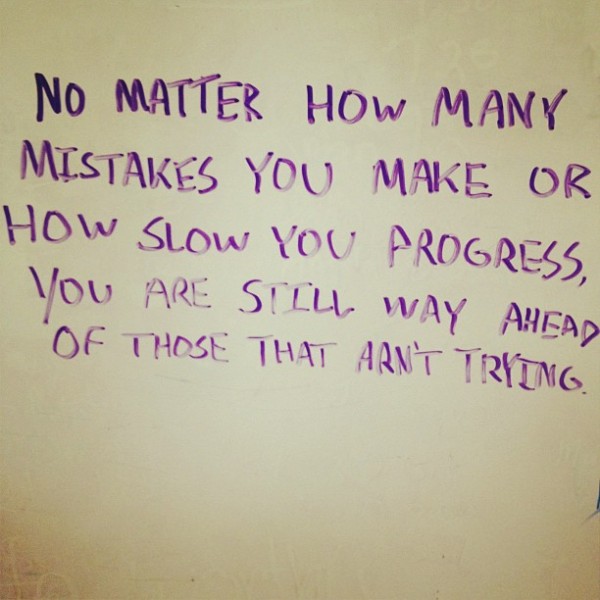 NO MATTER HOW MANY
MISTAKES YOU MAKE OR
HOW SLOW YOU PROGRESS,
YOU ARE STILL WAY AHEAD
OF THOSE THAT ARN'T TRYING.